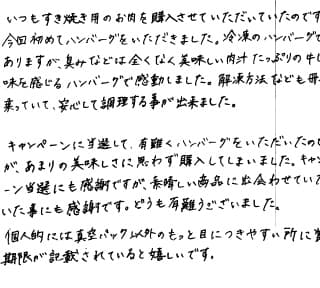 いつもすき焼き用のお肉を購入させていただいていたのです
今回初めてハンバーグをいただきました。冷凍のハンバーグで
ありますが、臭みなどは全くなく美味しい肉汁たっぷりの牛
味を感じるハンバーグで感動しました。解凍方法なども
来っていて、安心して調理する事が出来ました。
キャンペーンに当選して、有難くハンバーグをいただいたの
が、あまりの美味しさに思わず購入してしまいました。キャン
ーン当選にも感謝ですが、素晴しい商品に出会わせてい
いた事にも感謝です。どうも有難うございました。
個人的には真空パック以外のもっと目につきやすい所に
期限が記載されていると嬉しいです。